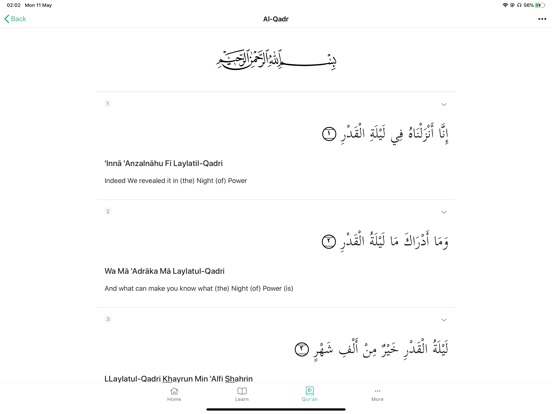 02:02 Mon 11 May
56%
Back
Al-Qadr
بِسْمِ اللَّهِ الرَّحْمَٰنِ الرَّحِيمِ
1
إِنَّا أَنْزَلْنَاهُ فِي لَيْلَةِ الْقَدْرِ ١
'Innā 'Anzalnāhu Fī Laylatil-Qadri
Indeed We revealed it in (the) Night (of) Power
2
وَمَا أَدْرَاكَ مَا لَيْلَةُ الْقَدْرِ ٢
Wa Mā 'Adrāka Mā Laylatul-Qadri
And what can make you know what (the) Night (of) Power (is)
3
لَيْلَةُ الْقَدْرِ خَيْرٌ مِنْ أَلْفِ شَهْرٍ ٣
LLaylatul-Qadri Khayrun Min 'Alfi Shahrin
Home
Learn
Qur'an
More